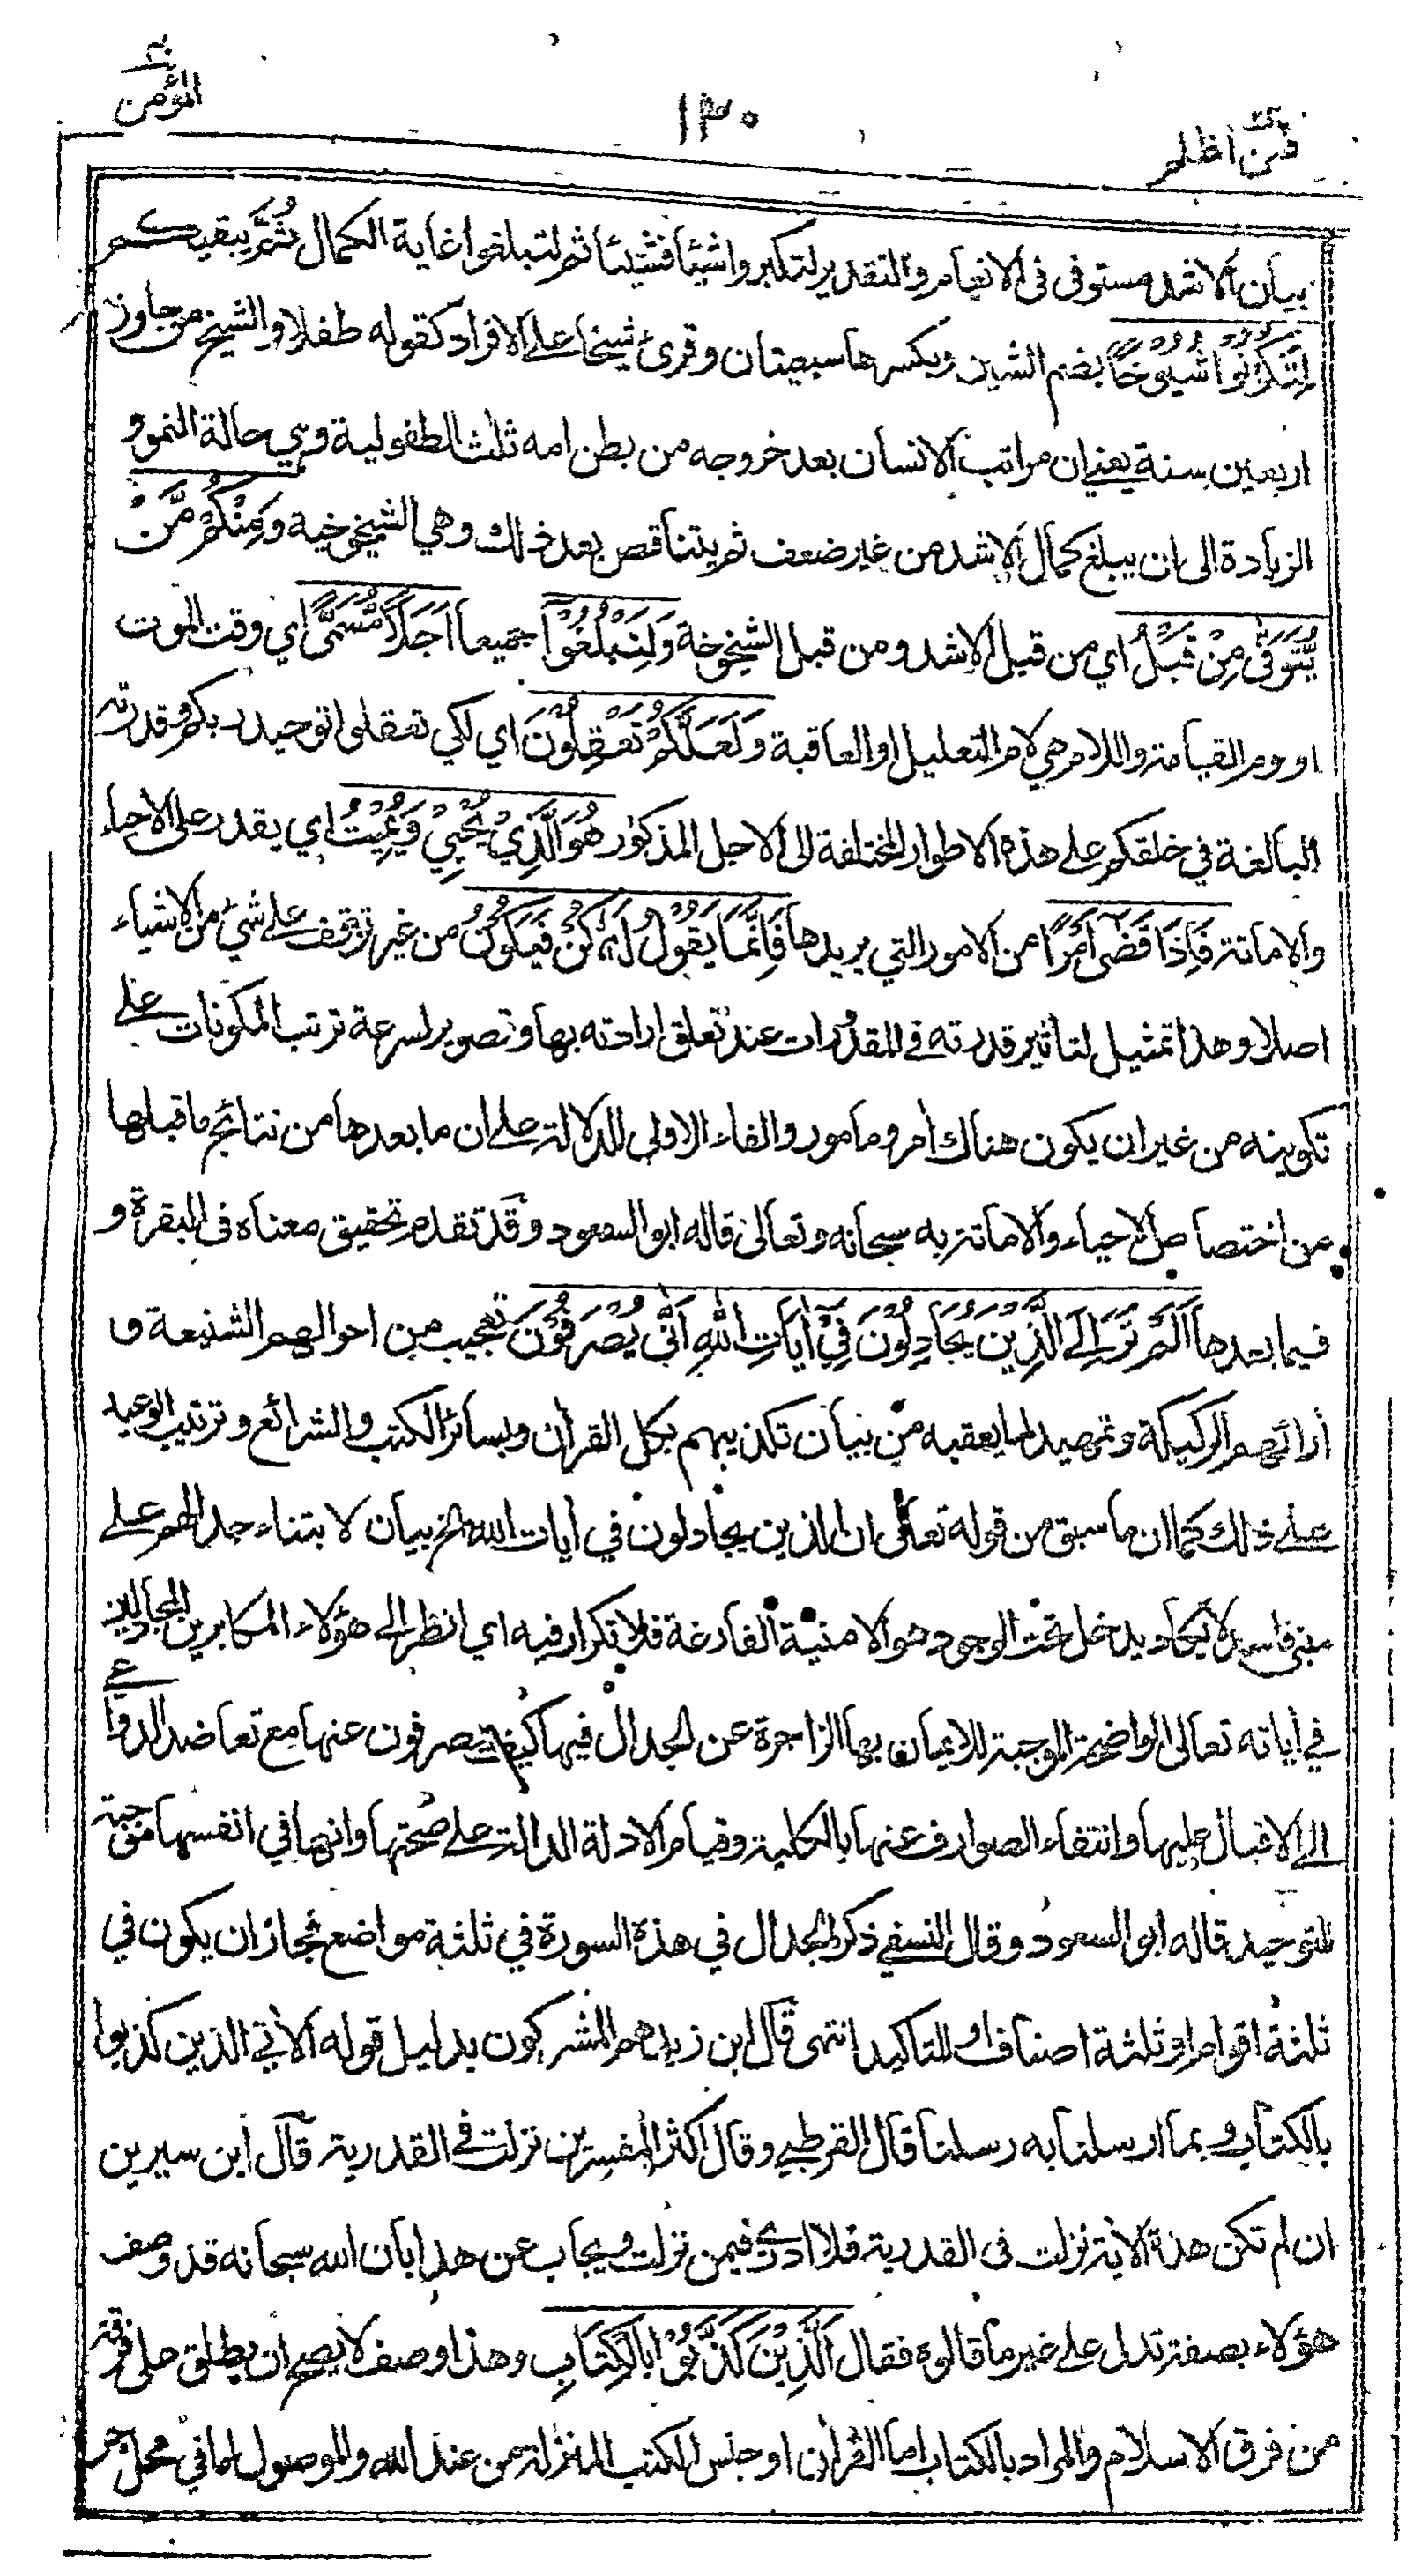 فمن اظلم
١٣٠
المؤمن
بيان الاشد مستوفى فى الانعام والتقدير لتكبروا شيئا فشيئا ثم لتبلغوا غاية الكمال ثُمَّ يبقيكم
لِتَكُوْنُوْا شُيُوْخًا بضم الشين وبكسرها سبعيتان وقرئ شيخا على الافراد كقوله طفلا والشيخ من جاوز
اربعين سنة يعني ان مراتب الانسان بعد خروجه من بطن امه ثلث الطفولية وهي حالة النمو و
الزيادة الى ان يبلغ كمال الاشد من غير ضعف ثم يتناقص بعد ذلك وهي الشيخوخية وَمِنْكُمْ مَّنْ
يُّتَوَفّٰى مِنْ قَبْلُ اي من قبل الاشد ومن قبل الشيخوخة وَلِتَبْلُغُوْٓا جميعا اَجَلًا مُّسَمًّى اي وقت الموت
او يوم القيامة واللام هي لام التعليل او العاقبة وَلَعَلَّكُمْ تَعْقِلُوْنَ اي لكي تعقلوا توحيد ربكم وقدرته
البالغة في خلقكم على هذه الاطوار المختلفة الى الاجل المذكور هُوَ الَّذِيْ يُحْيِيْ وَيُمِيْتُ اي يقدر على الاحياء
والاماتة فَاِذَا قَضٰٓى اَمْرًا من الامور التي يريدها فَاِنَّمَا يَقُوْلُ لَهٗ كُنْ فَيَكُوْنُ من غير توقف على شئ من الاشياء
اصلا وهذا تمثيل لتأثير قدرته في المقدورات عند تعلق ارادته بها وتصوير لسرعة ترتب المكونات على
تكوينه من غير ان يكون هناك أمر ومامور والفاء الاولى للدلالة على ان ما بعدها من نتائج ما قبلها
من اختصاص الاحياء والاماتة به سبحانه وتعالى قاله ابو السعود وقد تقدم تحقيق معناه فى البقرة و
فيما بعدها اَلَمْ تَرَ اِلَى الَّذِيْنَ يُجَادِلُوْنَ فِيْٓ اٰيَاتِ اللهِ اَنّٰى يُصْرَفُوْنَ تعجيب من احوالهم الشنيعة و
أرائهم الركيكة وتمهيد لما يعقبه من بيان تكذيبهم بكل القرأن وبسائر الكتب والشرائع وترتيب الوعيد
على ذلك كما ان ما سبق من قوله تعالى ان الذين يجادلون في أيات الله الخ بيان لابتناء جدالهم على
مبنى فاسد لا يكاد يدخل تحت الوجود هو الامنية الفارغة فلا تكرار فيه اي انظر الى هؤلاء المكابرين المجادلين
في أياته تعالى الواضحة الموجبة للايمان بها الزاجرة عن الجدال فيها كيف يصرفون عنها مع تعاضد الدواعي
الى الاقبال عليها وانتفاء الصوارف عنها بالكلية وقيام الادلة الدالة على صحتها وانها في انفسها موجبة
للتوحيد قاله ابو السعود وقال النسفي ذكر الجدال في هذه السورة في ثلثة مواضع فجاز ان يكون في
ثلثة اقوام او ثلثة اصناف او للتاكيد انتهى قال ابن زيد هم المشركون بدليل قوله الأتي الذين كذبوا
بالكتاب وبما ارسلنا به رسلنا قال القرطبي وقال اكثر المفسرين نزلت في القدرية قال ابن سيرين
ان لم تكن هذه الأية نزلت فى القدرية فلا ادري فيمن نزلت ويجاب عن هذا بان الله سبحانه قد وصف
هؤلاء بصفة تدل على غير ما قالوه فقال اَلَّذِيْنَ كَذَّبُوْا بِالْكِتَابِ وهذا وصف لا يصح ان يطلق على فرقة
من فرق الاسلام والمراد بالكتاب اما القرأن او جنس الكتب المنزلة من عند الله والموصول اما في محل جر